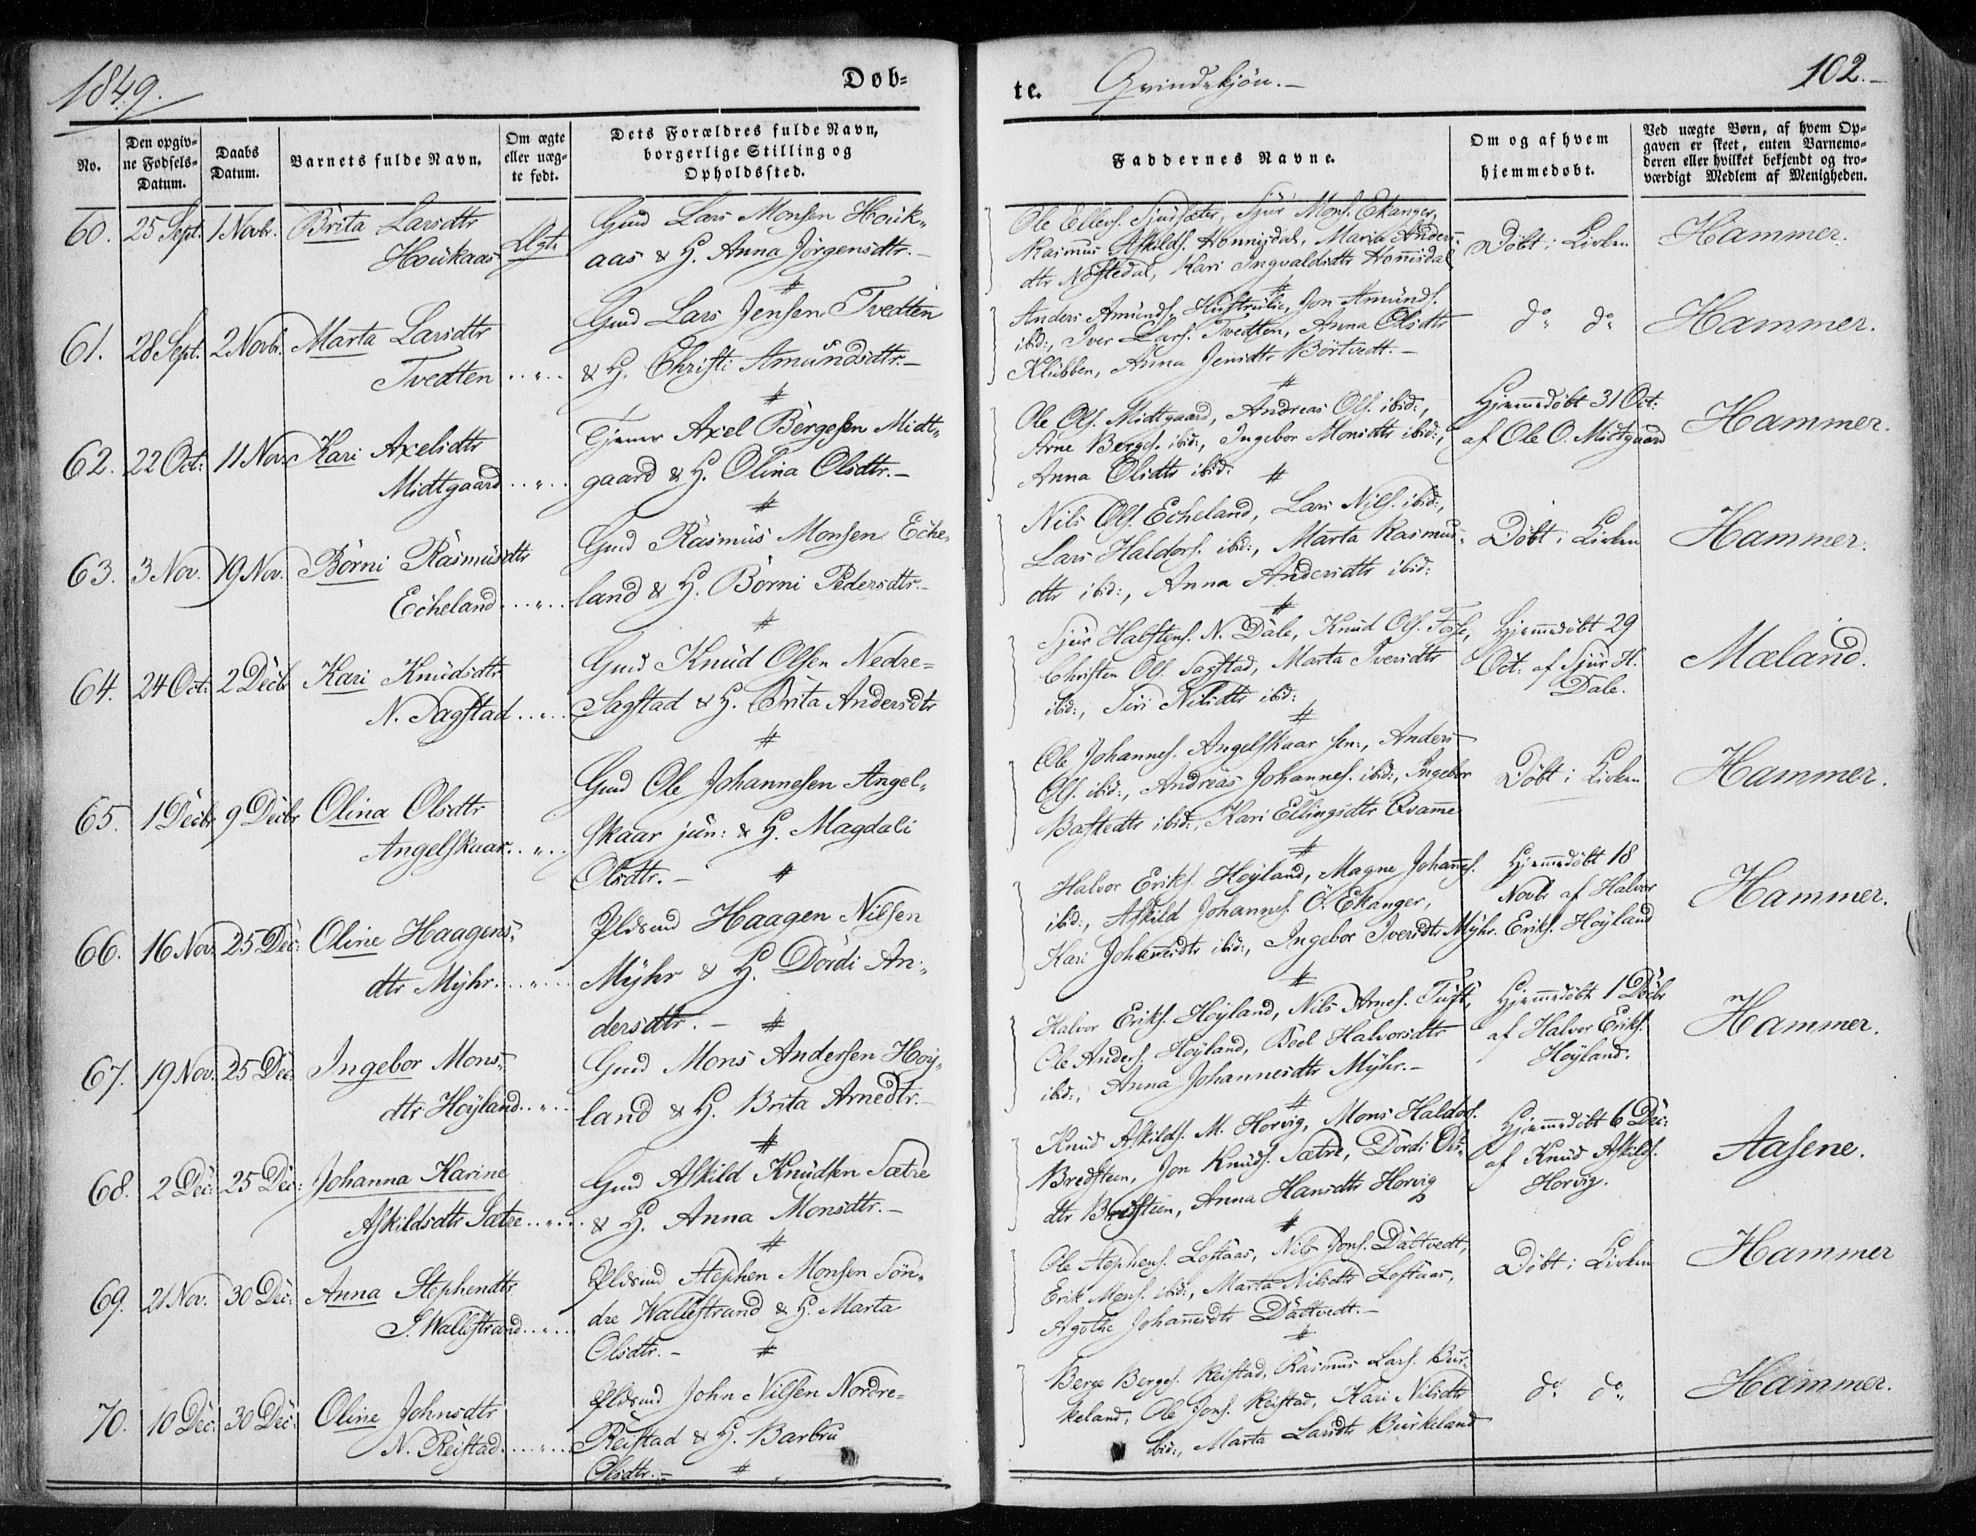 1849.
Døb=
te. Qvindekjön.
102.
No.
Den opgiv=
ne Fødsels=
Datum.
Daabs
Datum.
Barnets fulde Navn.
Om ægte
eller uæg=
te født.
Dets Forældres fulde Navn,
borgerlige Stilling og
Opholdssted.
Faddernes Navne.
Om og af hvem
hjemmedøbt.
Ved uægte Børn, af hvem Op=
gaven er skeet, enten Barnemo=
deren eller hvilket bekjendt og tro=
værdigt Medlem af Menigheden.
60. 25 Sept. 1 Novbr. Brita Larsdtr
Houkaas
Ægte
Gmd Lars Monsen Houk=
aas & H. Anna Jörgensdtr.
Ole Ellers. Sjursæter, Sjur Mons. Ekanger,
Rasmus Askilds. Honnisdal, Maria Anders=
dtr Nöstedal, Kari Ingvaldsdtr Honnisdal
Döbt i Kirken
Hammer.
61. 28 Sept. 2 Novbr. Marta Larsdtr
Tvedten
Gmd Lars Jensen Tvedten
& H. Christi Amundsdtr.
Anders Amunds. Jon Amunds.
ibid:, Iver Lars. Tvedten, Anna Olsdtr
Klubben, Anna Jensdtr Börtvedt.
do do
Hammer.
62. 22 Oct: 11 Nov: Kari Axelsdtr
Midtgaard
Tjener Axel Börgesen Midt=
gaard & H. Olina Olsdtr.
Ole Ols. Midtgaard, Andreas Ols. ibid:,
Arne Bergs. ibid:, Ingebor Monsdtr ibid:,
Anna Olsdtr ibid:
Hjemmedöbt 31 Oct:
af Ole O. Midtgaard
Hammer.
63. 3 Nov. 19 Nov. Börni Rasmusdtr
Echeland
Gmd Rasmus Monsen Eche=
land & H. Börni Pedersdtr.
Nils Ols. Echeland, Lars Nils. ibid:,
Lars Haldors. ibid:, Marta Rasmus=
dtr ibid:, Anna Andersdtr ibid:
Döbt i Kirken
Hammer.
64. 24 Oct: 2 Decbr Kari Knudsdtr
N. Sagstad
Gmd Knud Olsen Nedre=
Sagstad & H. Brita Andersdtr
Sjur Halstens. N. Dale, Knud Ols. Fosse,
Christen Ols. Sagstad, Marta Iversdtr
ibid:, Siri Nilsdtr ibid:
Hjemmedöbt 29
Oct: af Sjur H.
Dale.
Mæland.
65. 1 Decbr 9 Decbr Olina Olsdtr
Angelskaar
Gmd Ole Johannesen Angel=
skaar jun: & H. Magdali
Olsdtr.
Ole Johannes. Angelskaar sen:, Anders
Ols. ibid:, Andreas Johannes. ibid:, Ingebor
Bastedtr ibid:, Kari Ellingsdtr Qvamme
Döbt i Kirken
Hammer.
66. 16 Nov. 25 Dec: Oline Haagens=
dtr Myhr
Pldsmd Haagen Nilsen
Myhr & H. Dordi An=
dersdtr.
Halvor Eriks. Höyland, Magne Johannes.
ibid:, Askild Johannes. Ö. Ekanger,
Kari Johannesdtr ibid:, Ingebor Iversdtr Myhr.
Hjemmedöbt 18
Novbr af Halvor
Eriks. Höyland
Hammer.
67. 19 Nov. 25 Dec: Ingebor Mons=
dtr Höyland
Gmd Mons Andersen Höy=
land & H. Brita Arnedtr.
Halvor Eriks. Höyland, Nils Arnes. Tuft,
Ole Anders. Höyland, Boel Halvorsdtr
ibid:, Anna Johannesdtr Myhr.
Hjemmedöbt 1 Decbr
af Halvor Eriks.
Höyland.
Hammer.
68. 2 Dec: 25 Dec: Johanna Karine
Askildsdtr Sætre
Gmd Askild Knudsen Sætre
& H. Anna Monsdtr.
Knud Askilds. M. Horvig, Mons Haldors.
Bredsteen, Jon Knuds. Sætre, Dordi Ols=
dtr Bredsteen, Anna Hansdtr Horvig
Hjemmedöbt 6 Dec:
af Knud Askilds.
Horvig.
Aasene.
69. 21 Nov. 30 Dec: Anna Stephensdtr
S. Wallestrand
Pldsmd Stephen Monsen Sön=
dre Wallestrand & H. Marta
Olsdtr.
Ole Stephens. Loftaas, Nils Jons. Dattvedt,
Erik Mons. ibid:, Marta Nilsdtr Loftaas,
Agothe Johannesdtr Dattvedt.
Döbt i Kirken
Hammer
70. 10 Dec: 30 Dec: Oline Johnsdtr
N. Reistad
Pldsmd John Nilsen Nordre=
Reistad & H. Barbru
Olsdtr.
Berge Berges. Reistad, Rasmus Lars. Bur=
keland, Ole Jons. Reistad, Kari Nilsdtr
ibid:, Marta Larsdtr Burkeland
do do
Hammer.